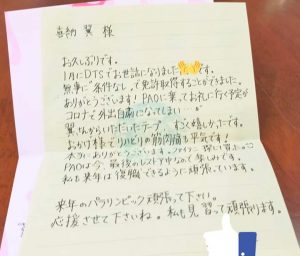 喜納 翼 様
お久しぶりです。
1月にDTSでお世話になりました です。
無事に“条件なし”で免許取得することができました。
ありがとうございます！PAOに乗ってお礼に行く予定が
コロナで外出自粛になってしまい…
翼さんからいただいたテープ すごく嬉しかったです。
おかげ様でリハビリの筋肉痛も平気です！
本当にありがとうございます。
PAOは今、最後のレストア中なので楽しみです。
私も来年は復職できるように頑張っています。
来年のパラリンピック頑張って下さい。
応援させて下さいね。私も見習って頑張ります。